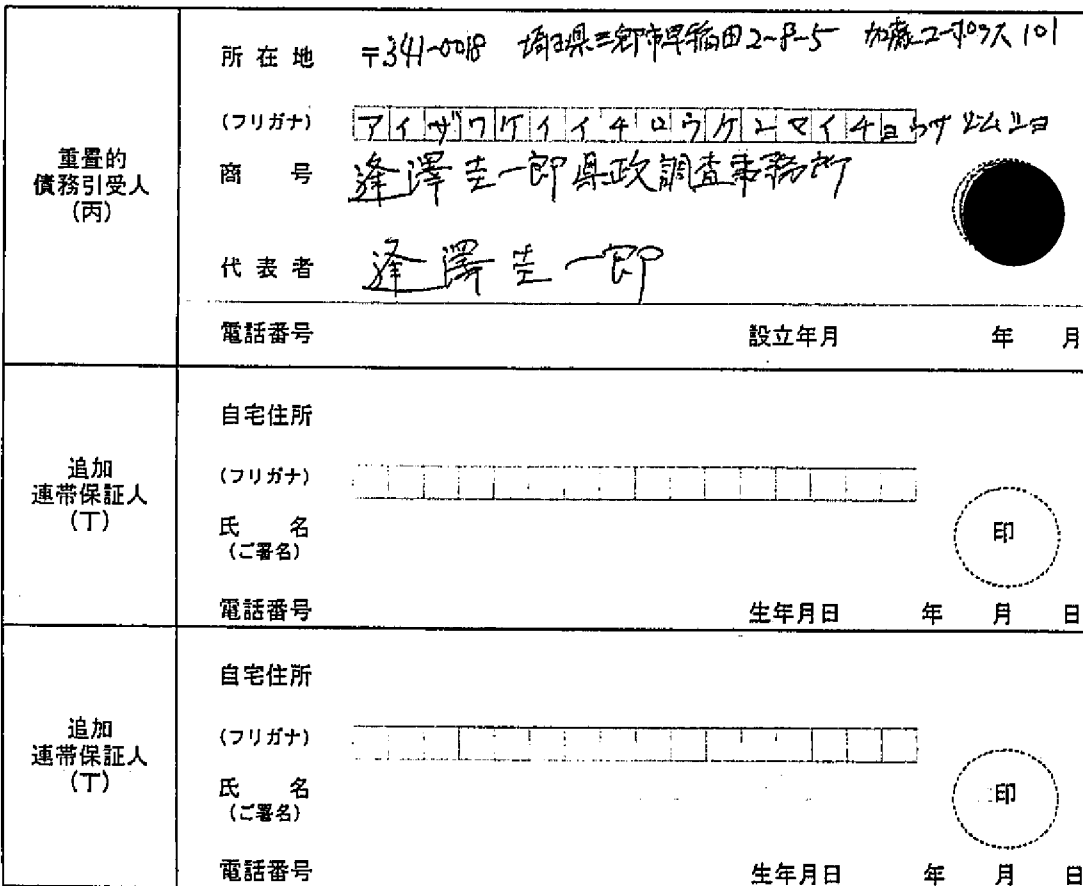 重畳的
債務引受人
(丙)
所在地 〒341-0018 埼玉県三郷市早稲田2-8-5 加藤コーポラス101
(フリガナ) アイザワケイイチロウケンセイチョウサジムショ
商号 逢澤圭一郎県政調査事務所
代表者 逢澤圭一郎
電話番号 設立年月 年 月
追加
連帯保証人
(丁)
自宅住所
(フリガナ)
氏名
(ご署名)
印
電話番号 生年月日 年 月 日
追加
連帯保証人
(丁)
自宅住所
(フリガナ)
氏名
(ご署名)
印
電話番号 生年月日 年 月 日